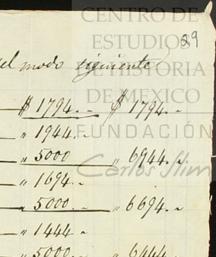 CENTRO DE
ESTUDIOS
29
el modo siguiente
DE HISTORIA
DE MEXICO
$ 1794.. $ 1794..
" 1944..
FUNDACIÓN
" 5000 " 6944..
Carlos Slim
" 1694..
" 5000.. " 6694..
" 1444..
" 5000.. " 6444..